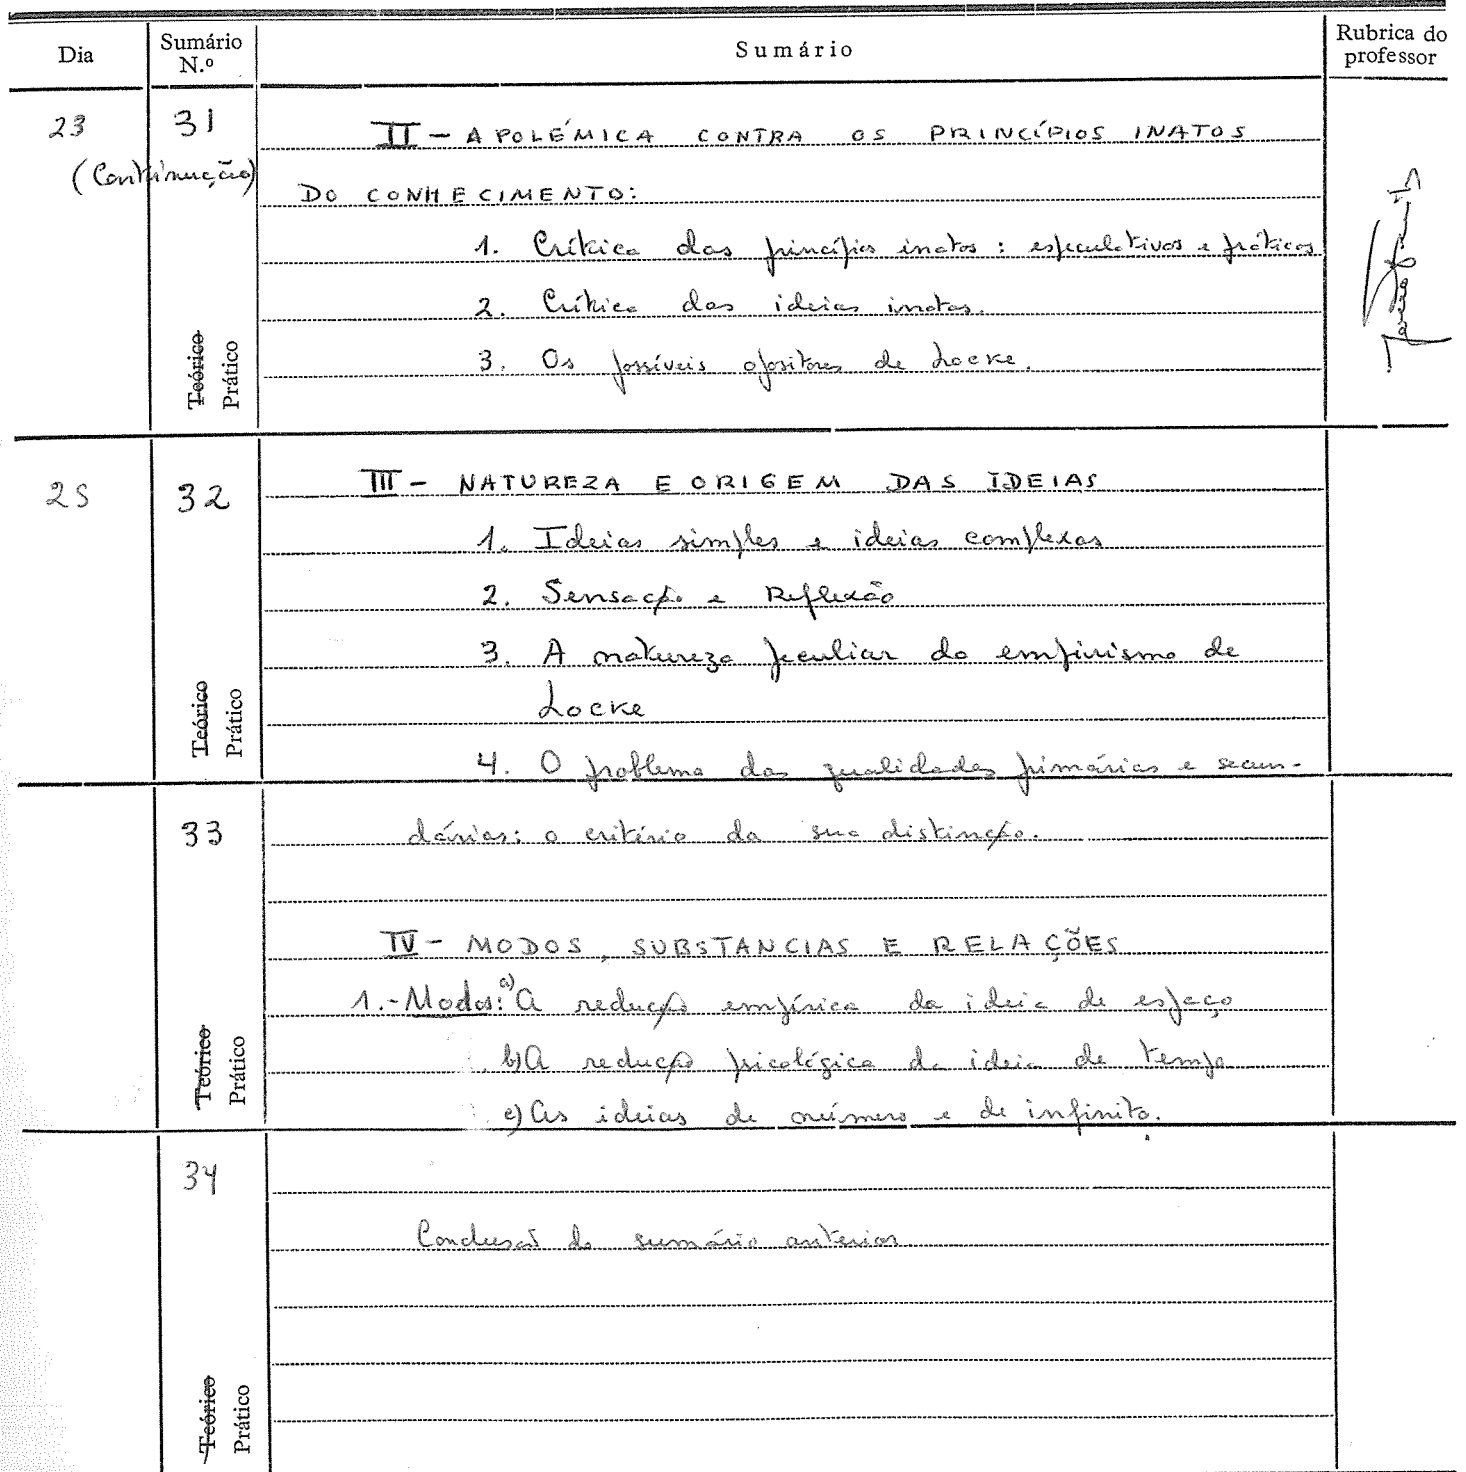 Dia Sumário N.º Sumário Rubrica do professor
23 31 II - A POLÉMICA CONTRA OS PRINCÍPIOS INATOS
(Continuação) DO CONHECIMENTO:
1. Crítica dos princípios inatos: especulativos e práticos
2. Crítica das ideias inatas.
3. Os possíveis opositores de Locke.
Teórico
Prático
25 32 III - NATUREZA E ORIGEM DAS IDEIAS
1. Ideias simples e ideias complexas
2. Sensação e Reflexão
3. A natureza peculiar do empirismo de
Locke
Teórico
Prático
4. O problema das qualidades primárias e secun-
33 dárias: o critério da sua distinção.
IV - MODOS, SUBSTANCIAS E RELAÇÕES
1.- Modos: a) A redução empírica da ideia de espaço
b) A redução psicológica da ideia de tempo
c) As ideias de número e de infinito.
Teórico
Prático
34
Conclusão do sumário anterior
Teórico
Prático